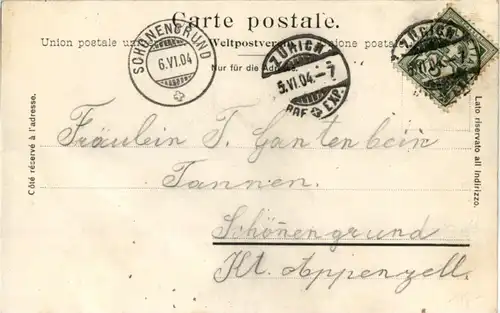 Carte postale.
Union postale un Weltpostver ione postale
Nur für die Adresse.
SCHÖNENGRUND
6.VI.04
ZÜRICH
5.VI.04.–7
BRF. EXP.
ZÜRICH
VI.04
Côté réservé à l'adresse.
Lato riservato all indirizzo.
Fräulein T. Gantenbein
Tannen.
Schönengrund
Kt. Appenzell.